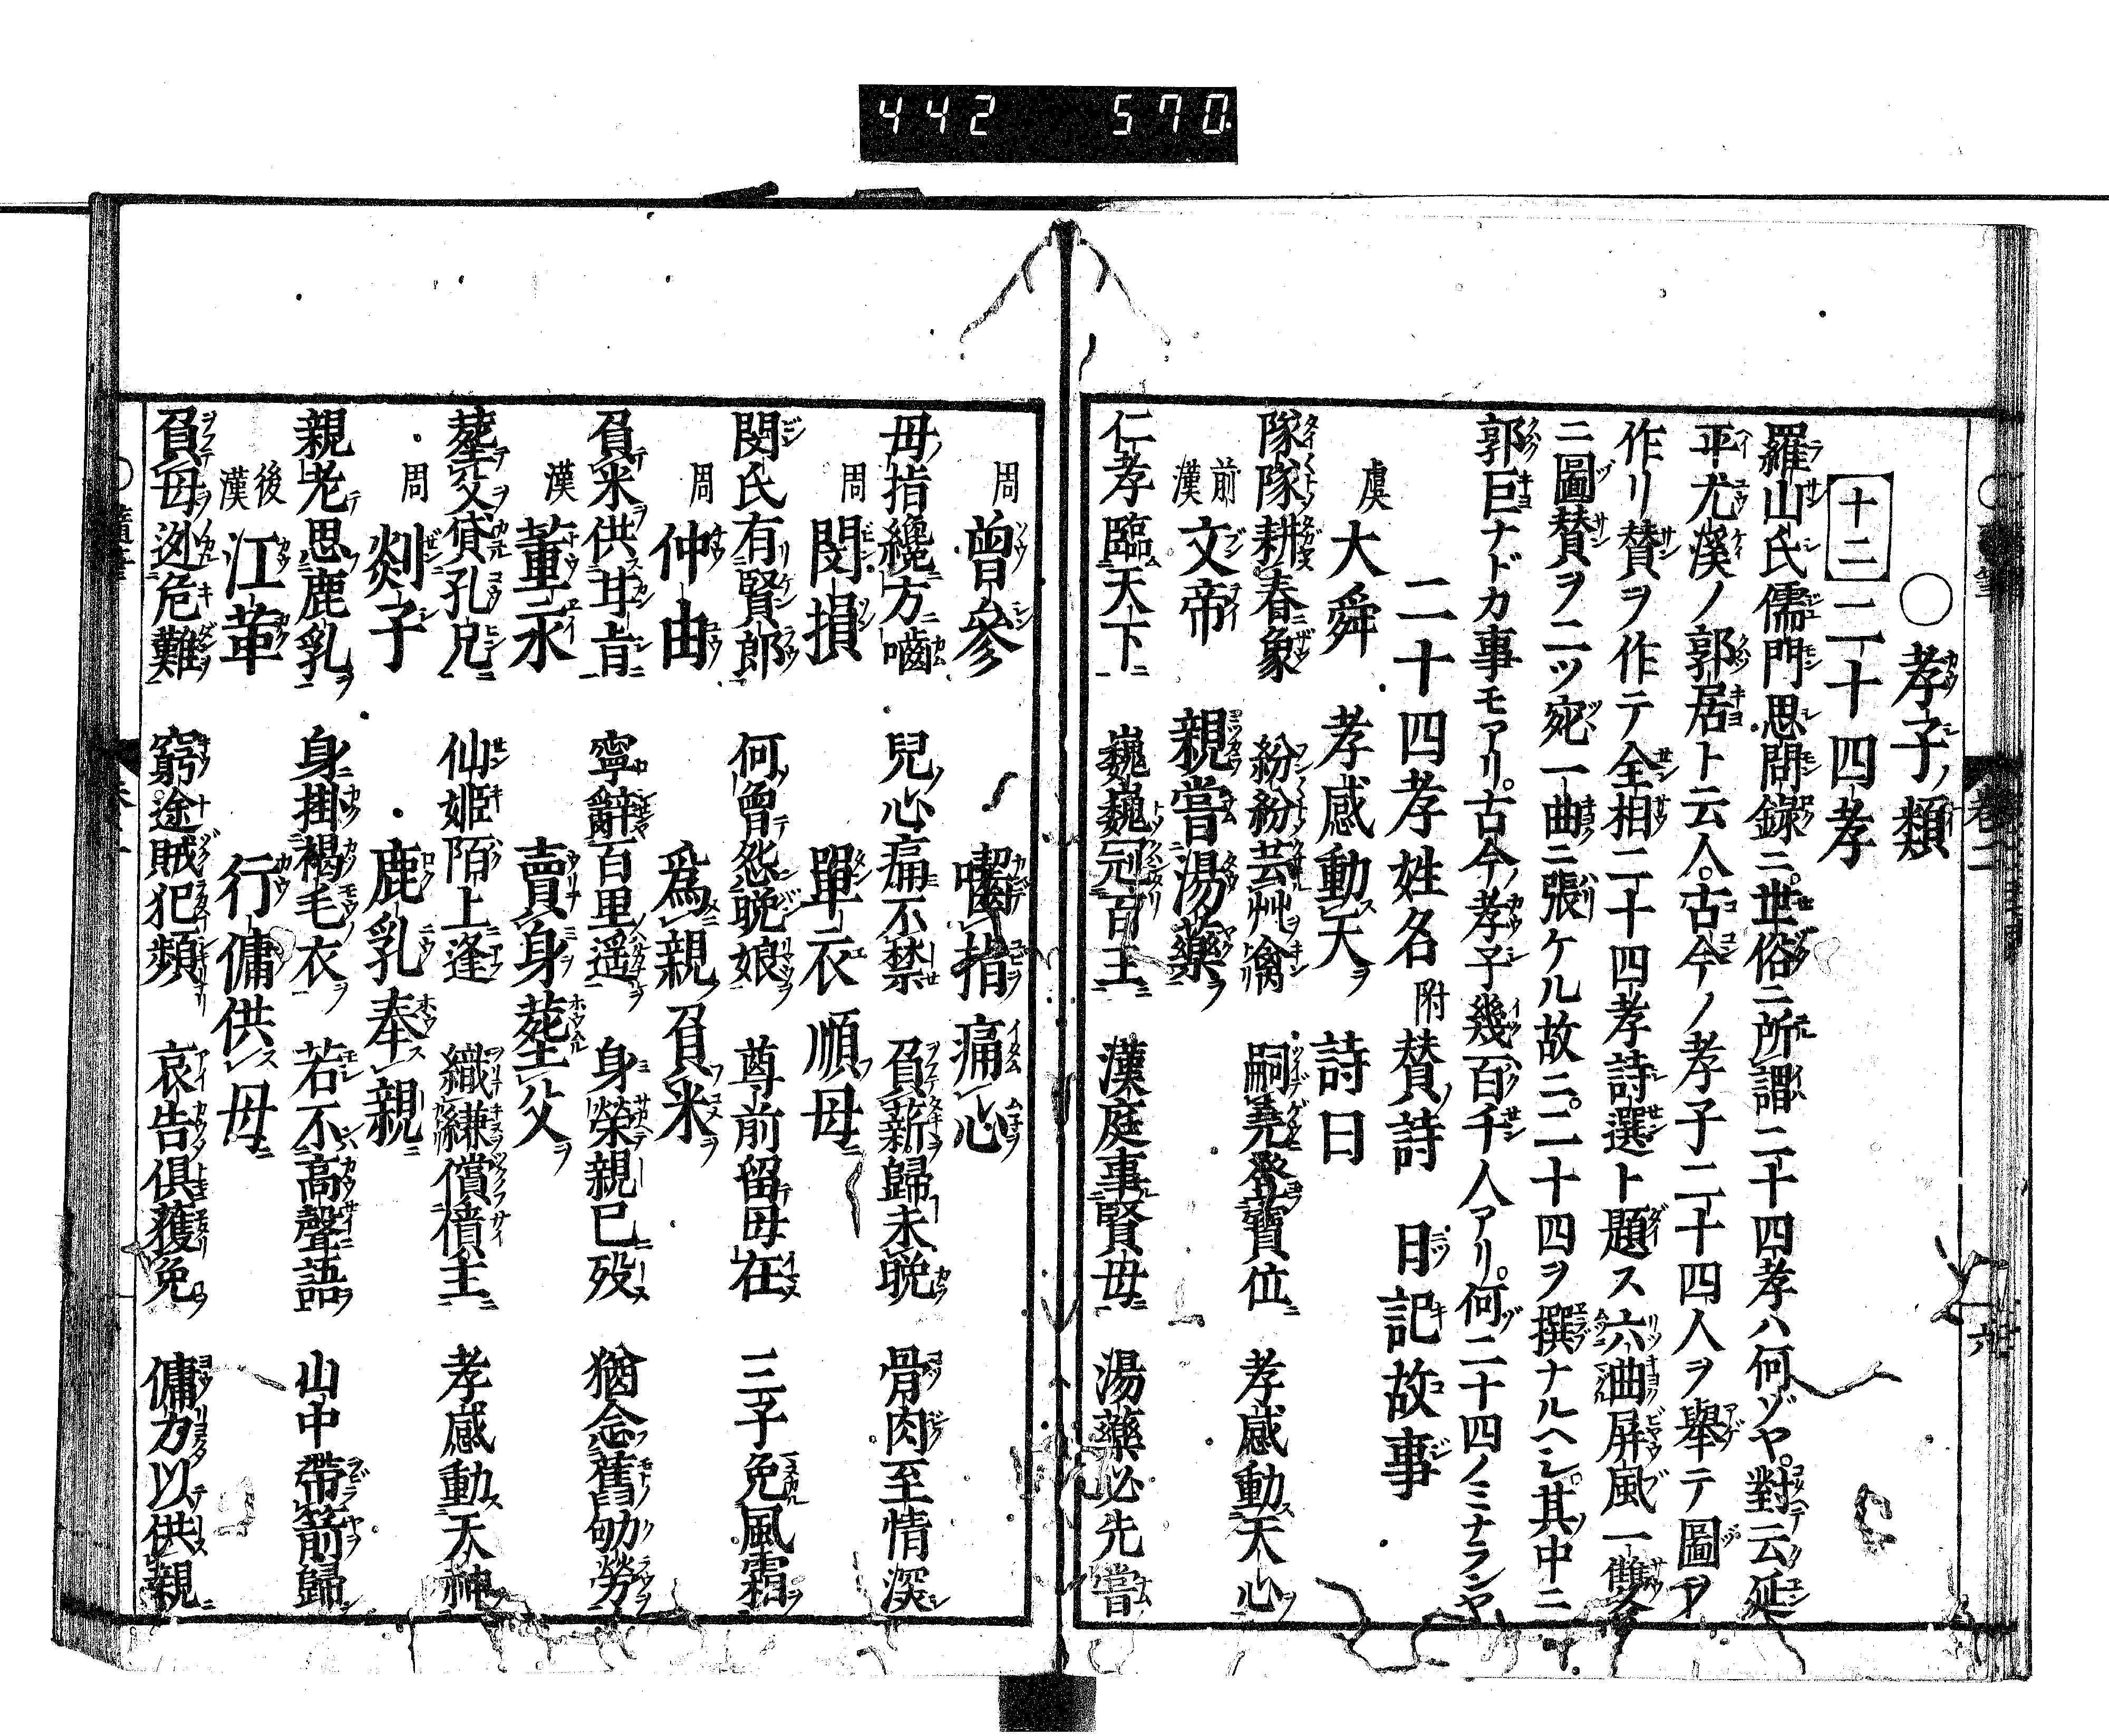 442 570
○孝子ノ類
十二 二十四孝
羅山氏儒門思問錄ニ世俗ニ所謂二十四孝ハ何ゾヤ對云延
平尤溪ノ郭居ト云人古今ノ孝子二十四人ヲ舉テ圖ヲ
作リ賛ヲ作テ全相二十四孝詩選ト題ス六曲屏風一雙
ニ圖賛ヲ二ツ宛一曲ニ張ケル故ニ二十四ヲ撰ナルヘシ其中ニ
郭巨ナドカ事モアリ古今ノ孝子幾百千人アリ何ゾ二十四ノミナランヤ
二十四孝姓名 附賛詩 日記故事
虞 大舜 孝感動天 詩曰
隊隊耕春象 紛紛芸艸禽 嗣堯登寶位 孝感動天心
前漢 文帝 親嘗湯藥
仁孝臨天下 巍巍冠百王 漢庭事賢母 湯藥必先嘗
周 曾參 嚙指痛心
母指纔方嚙 兒心痛不禁 負薪歸未晚 骨肉至情深
周 閔損 單衣順母
閔氏有賢郎 何曾怨晚娘 尊前留母在 三子免風霜
周 仲由 爲親負米
負米供甘旨 寧辭百里遥 身榮親已殁 猶念舊劬勞
漢 董永 賣身葬父
葬父貸孔兄 仙姬陌上逢 織縑償債主 孝感動天神
周 剡子 鹿乳奉親
親老思鹿乳 身掛褐毛衣 若不高聲語 山中帶箭歸
後漢 江革 行傭供母
負母逃危難 窮途賊犯頻 哀告俱獲免 傭力以供親